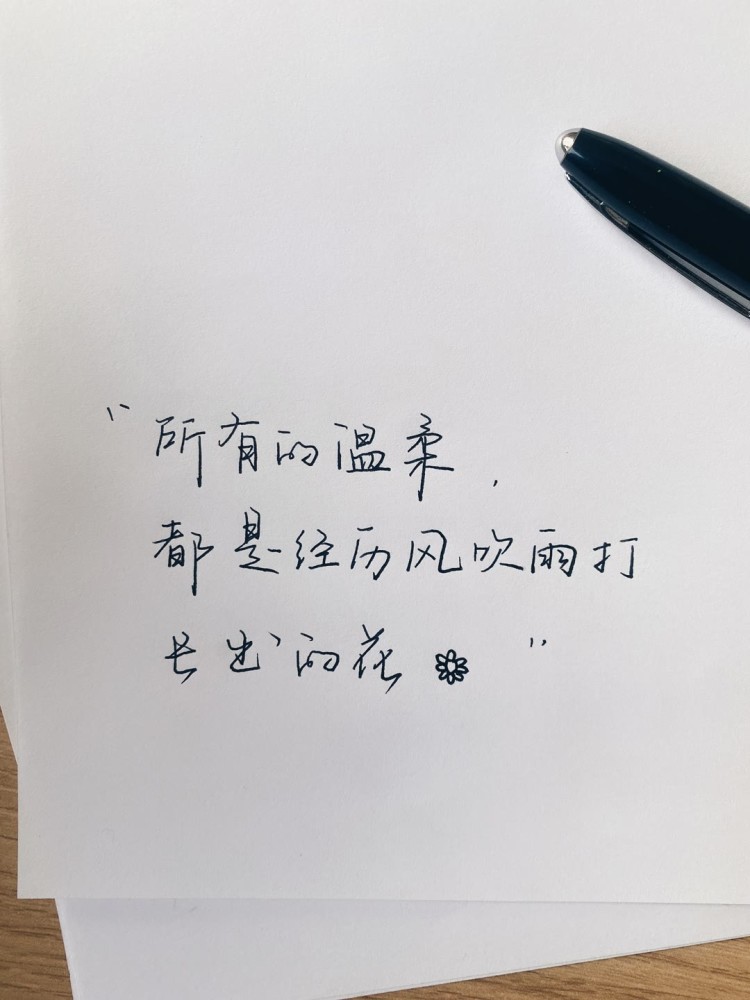 “所有的温柔，
都是经历风吹雨打
长出的花”